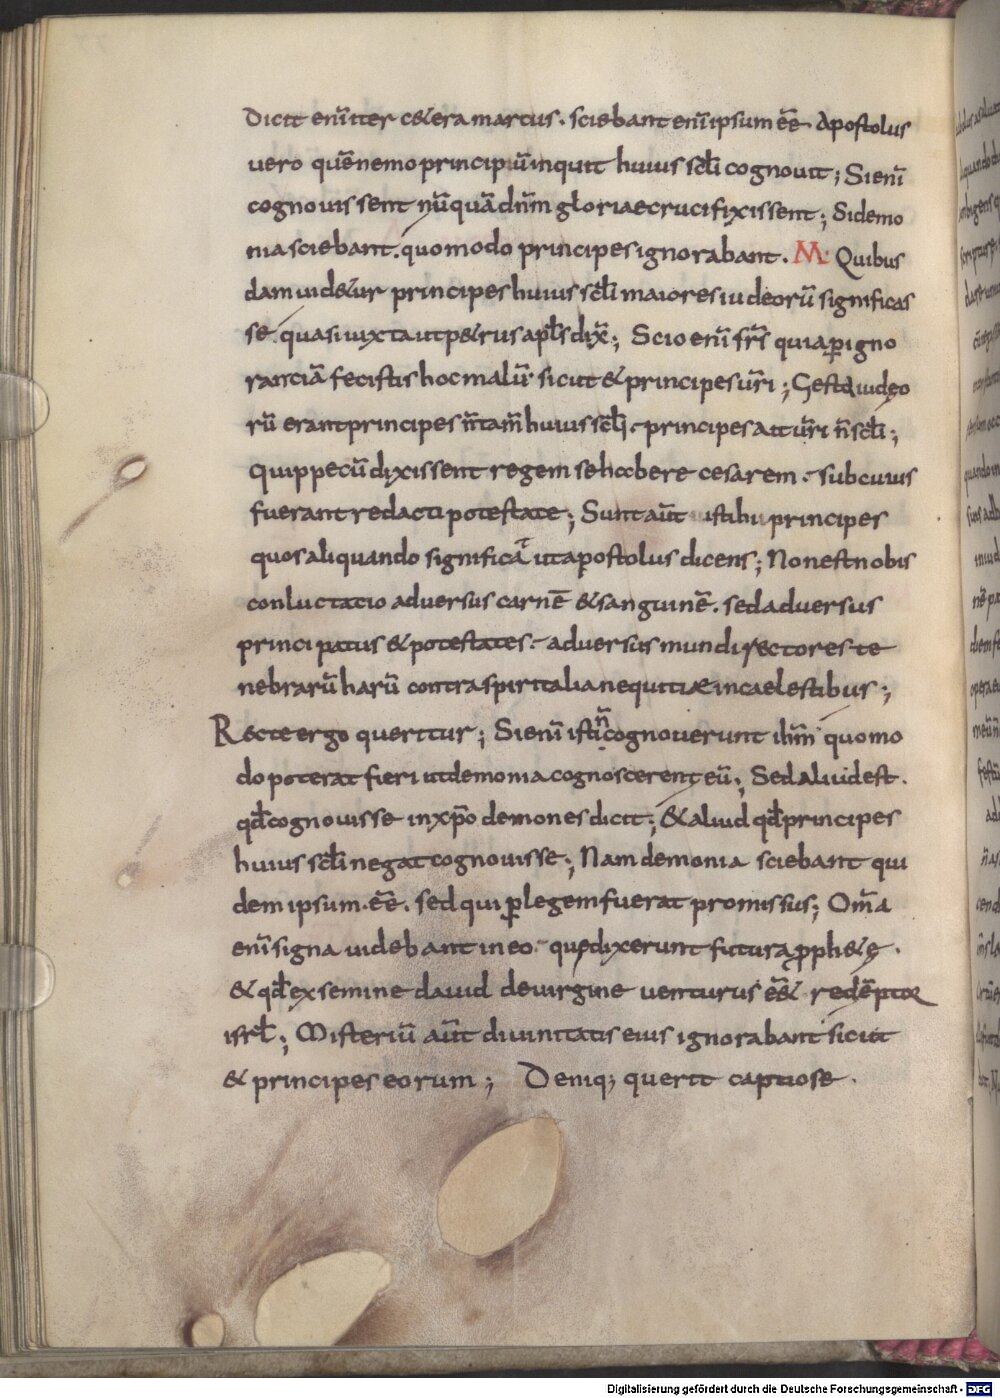 Dicit enī inter c&era marcus. sciebant enī ipsum eē. Apostolus
vero quē nemo principū inquit huius scl̄i cognouit; Si enī
cognouissent nūquā dn̄m gloriae crucifixissent; Si demo
nia sciebant. quomodo principes ignorabant. M. Quibus
dam uid&ur principes huius scl̄i maiores iudeorū significas
se. quasi iuxta ut p&rus apl̄s dix̄; Scio enī fr̄s quia ꝑ igno
rantiā fecistis hoc malū sicut & principes ur̄i; Gesta iudeo
rū erant principes n̄ tam̄ huius scl̄i. principes aut ur̄i n̄ scl̄i;
quippe cū dixissent regem se habere cesarem. sub cuius
fuerant redacti potestate; Sunt aūt istibu principes
quos aliquando significāt ut apostolus dicens; Non est nobis
conluctatio aduersus carnē & sanguinē. sed aduersus
principatus & potestates. aduersus mundi rectores te
nebrarū harū contra spiritalia nequitiæ in caelestibus;
Recte ergo queritur; Si enī isti n̄ cognouerunt ih̄m quomo
do poterat fieri ut demonia cognoscerent eū; Sed aliud est.
qd̄ cognouisse in xp̄o demones dicit; & aliud qd̄ principes
huius scl̄i negat cognouisse; Nam demonia sciebant qui
dem ipsum. eē. sed qui ꝑ legem fuerat promissus; Om̄a
enī signa uidebant in eo. que dixerunt futura ꝓph&ę.
& qd̄ ex semine dauid de uirgine venturus eē& redēptor
isrl̄; Misteriū aūt diuinitatis eius ignorabant sicut
& principes eorum; Deniq; querit captiose.
Digitalisierung gefördert durch die Deutsche Forschungsgemeinschaft - DFG